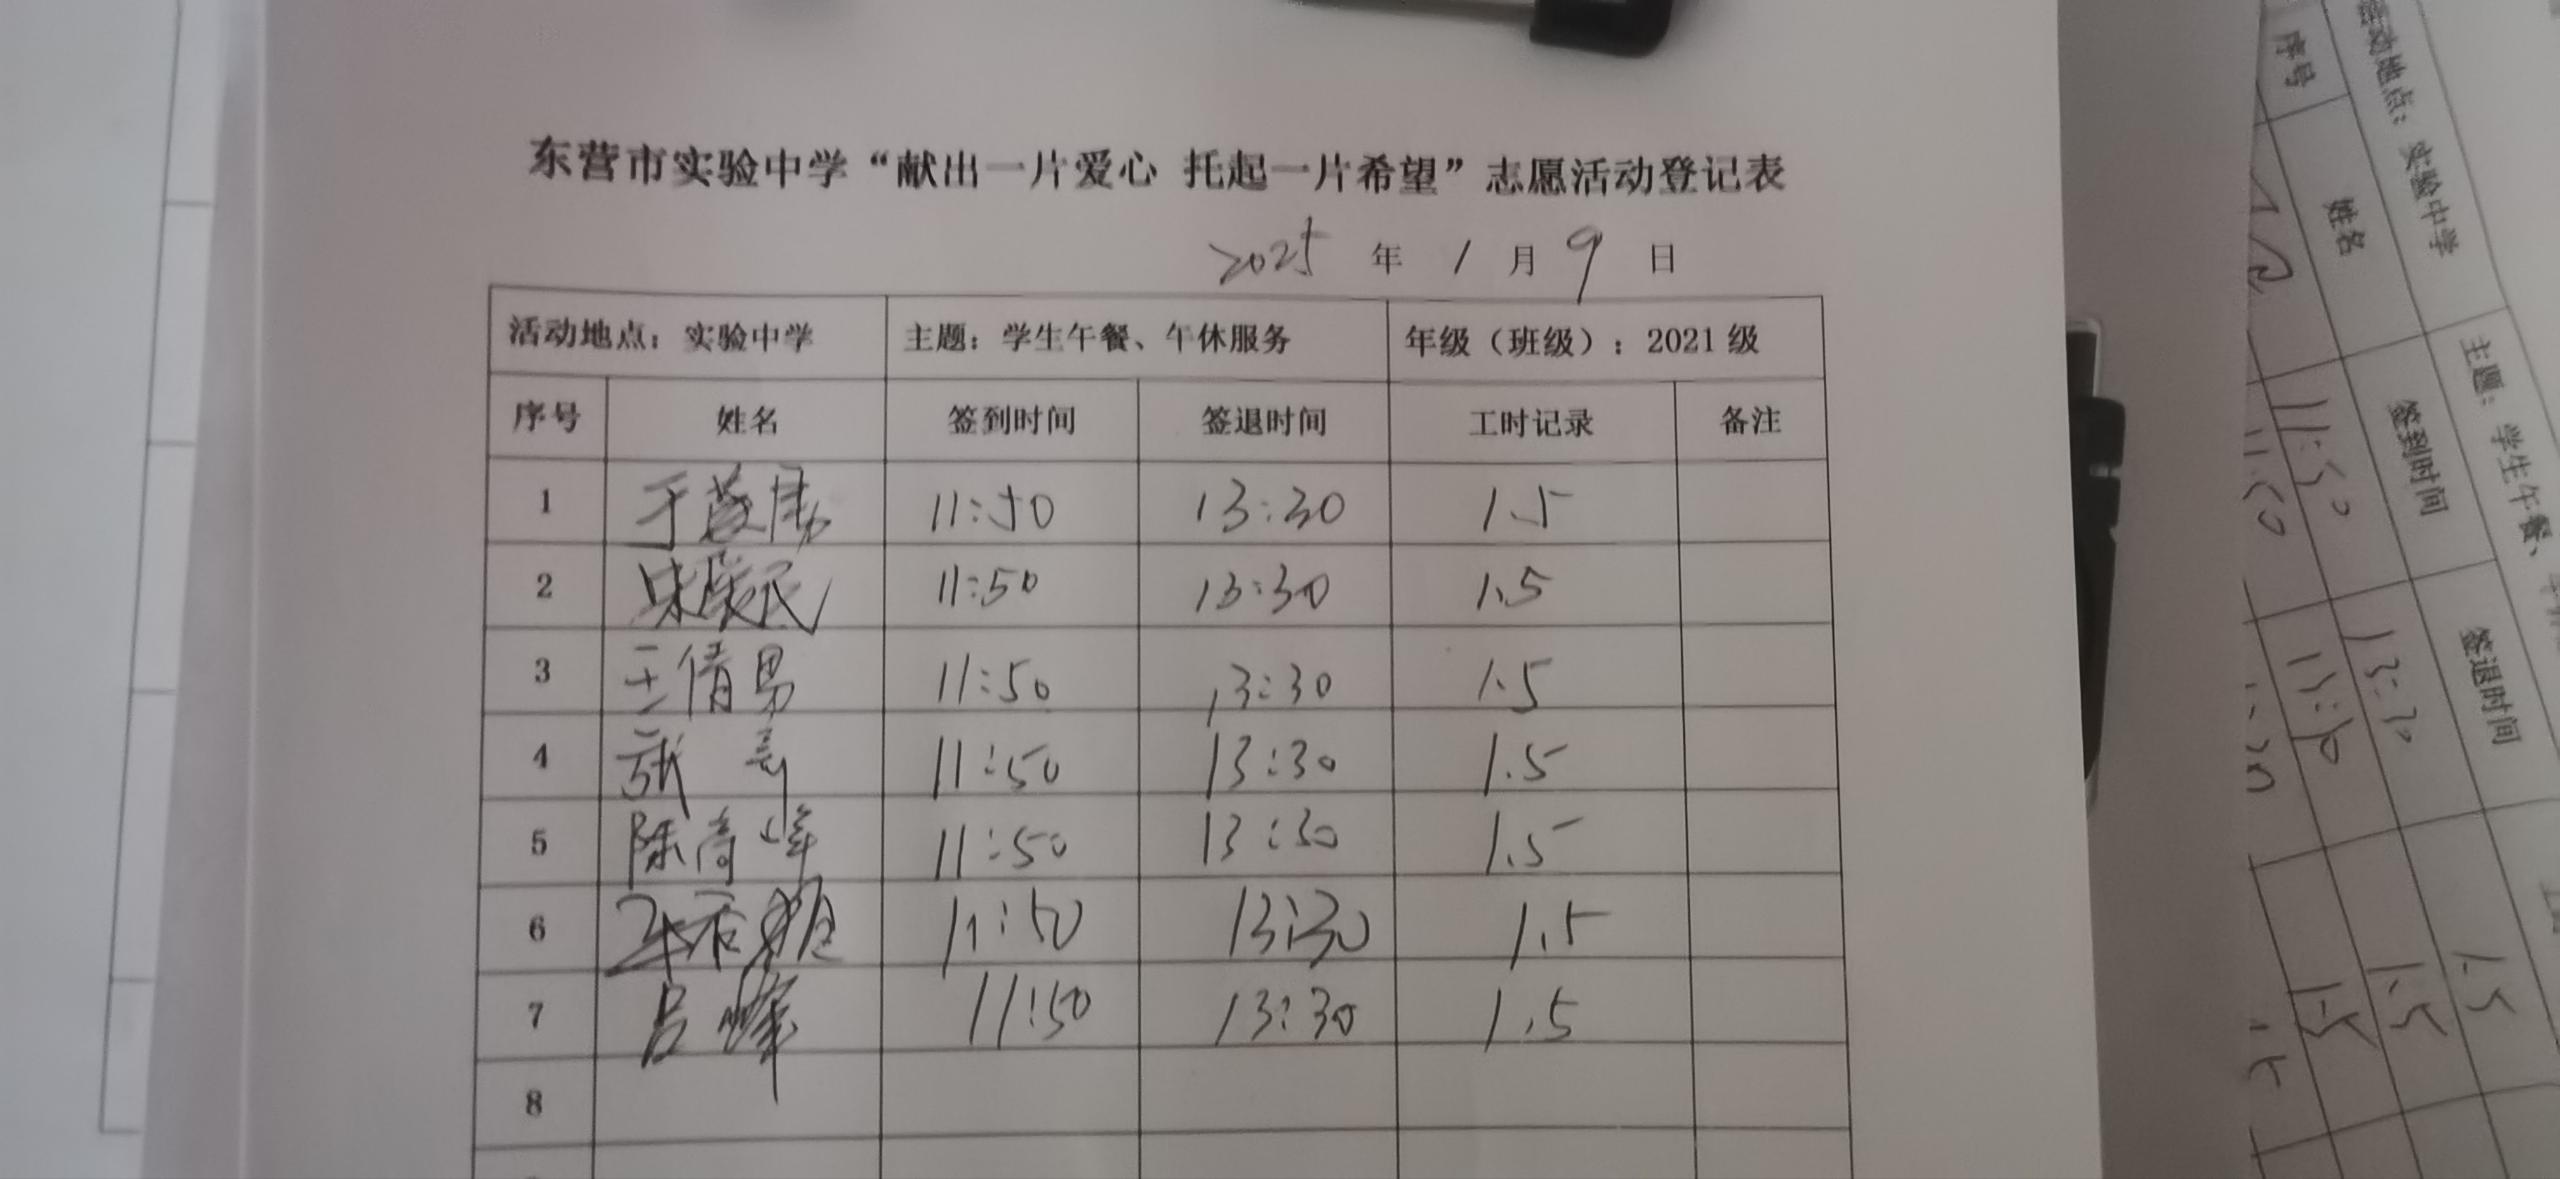 东营市实验中学“献出一片爱心 托起一片希望”志愿活动登记表
2025 年 1 月 9 日
活动地点：实验中学 主题：学生午餐、午休服务 年级（班级）：2021 级
序号 姓名 签到时间 签退时间 工时记录 备注
1 于 11:50 13:30 1.5
2 11:50 13:30 1.5
3 王倩男 11:50 13:30 1.5
4 张奇 11:50 13:30 1.5
5 陈高峰 11:50 13:30 1.5
6 11:50 13:30 1.5
7 吕峰 11:50 13:30 1.5
8
活动地点：实验中学 主题：学生午餐、
序号 姓名 签到时间 签退时间
11:50 13:30 1.5
1.5
1.5